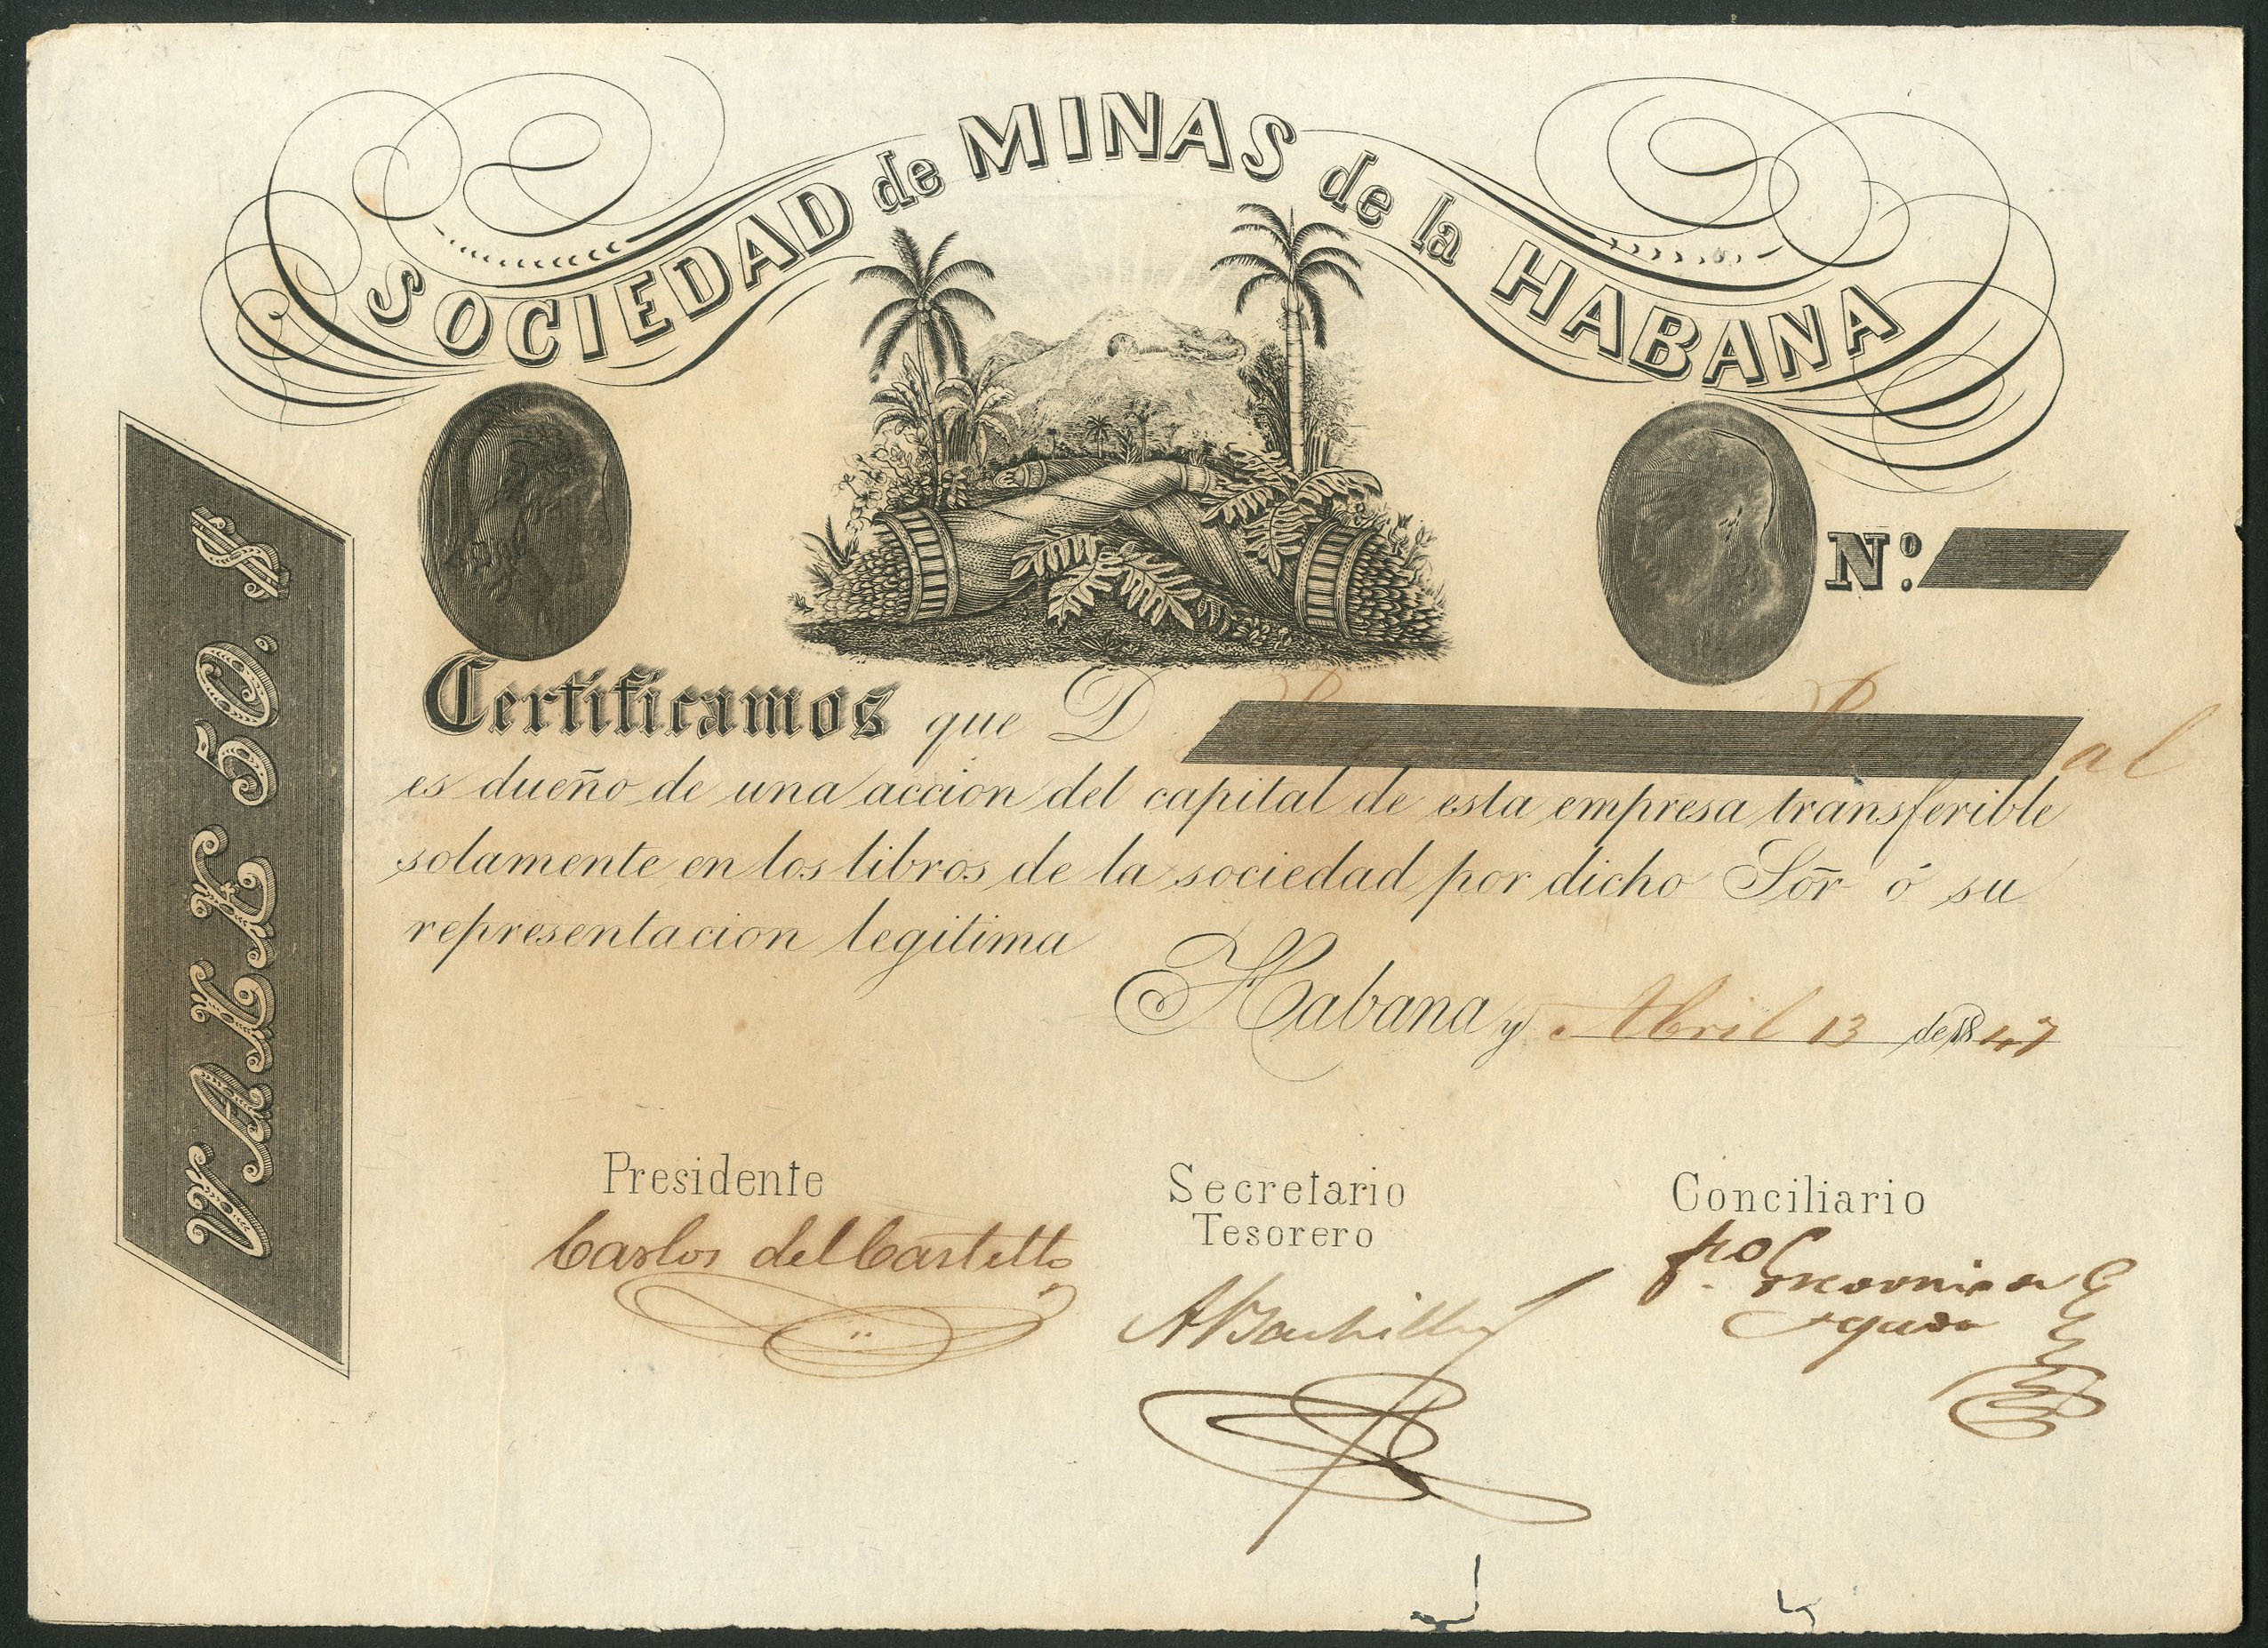 SOCIEDAD de MINAS de la HABANA
VALE 50. $
Nº:
Certificamos que D
es dueño de una accion del capital de esta empresa transferible
solamente en los libros de la sociedad por dicho Sõr ó su
representacion legitima
Habana y Abril 13 de 1847
Presidente
Carlos del Castillo
Secretario
Tesorero
ABachiller
Conciliario